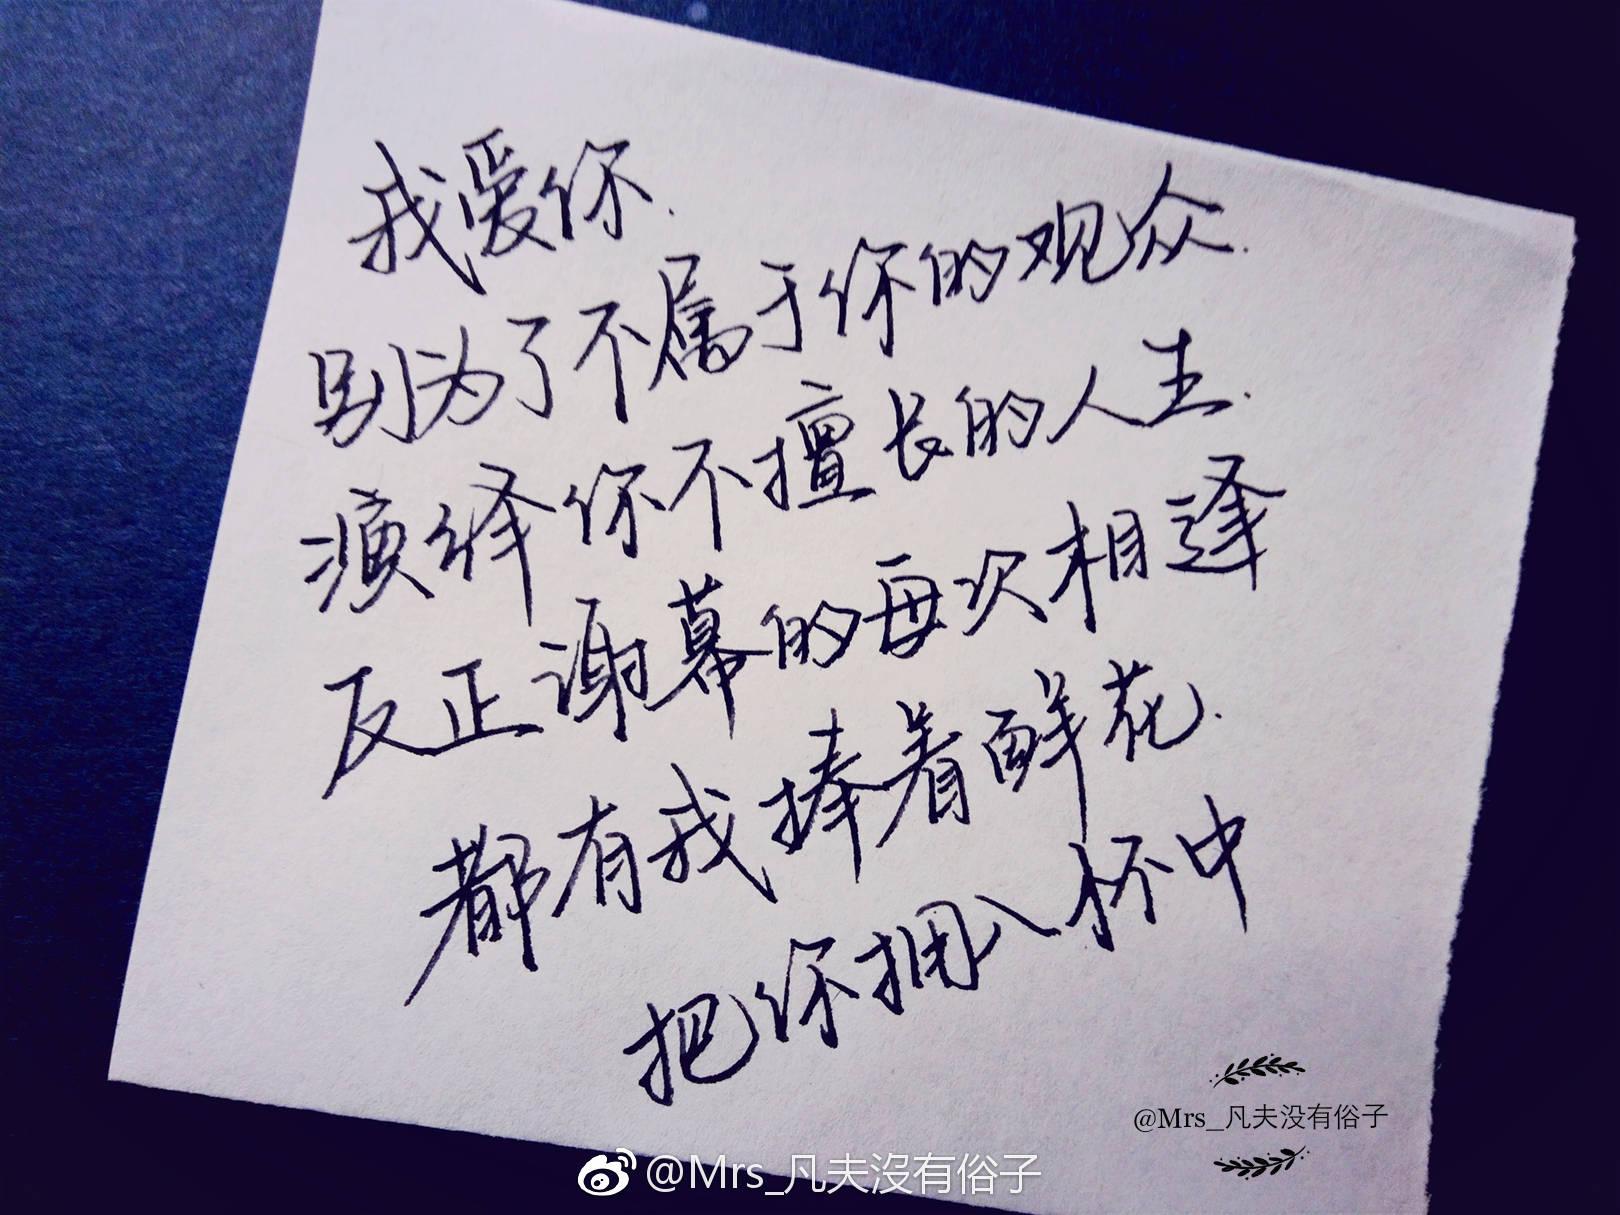 我爱你.
别为了不属于你的观众.
演绎你不擅长的人生.
反正谢幕的每次相逢
都有我捧着鲜花.
把你拥入杯中
@Mrs_凡夫没有俗子
@Mrs_凡夫沒有俗子